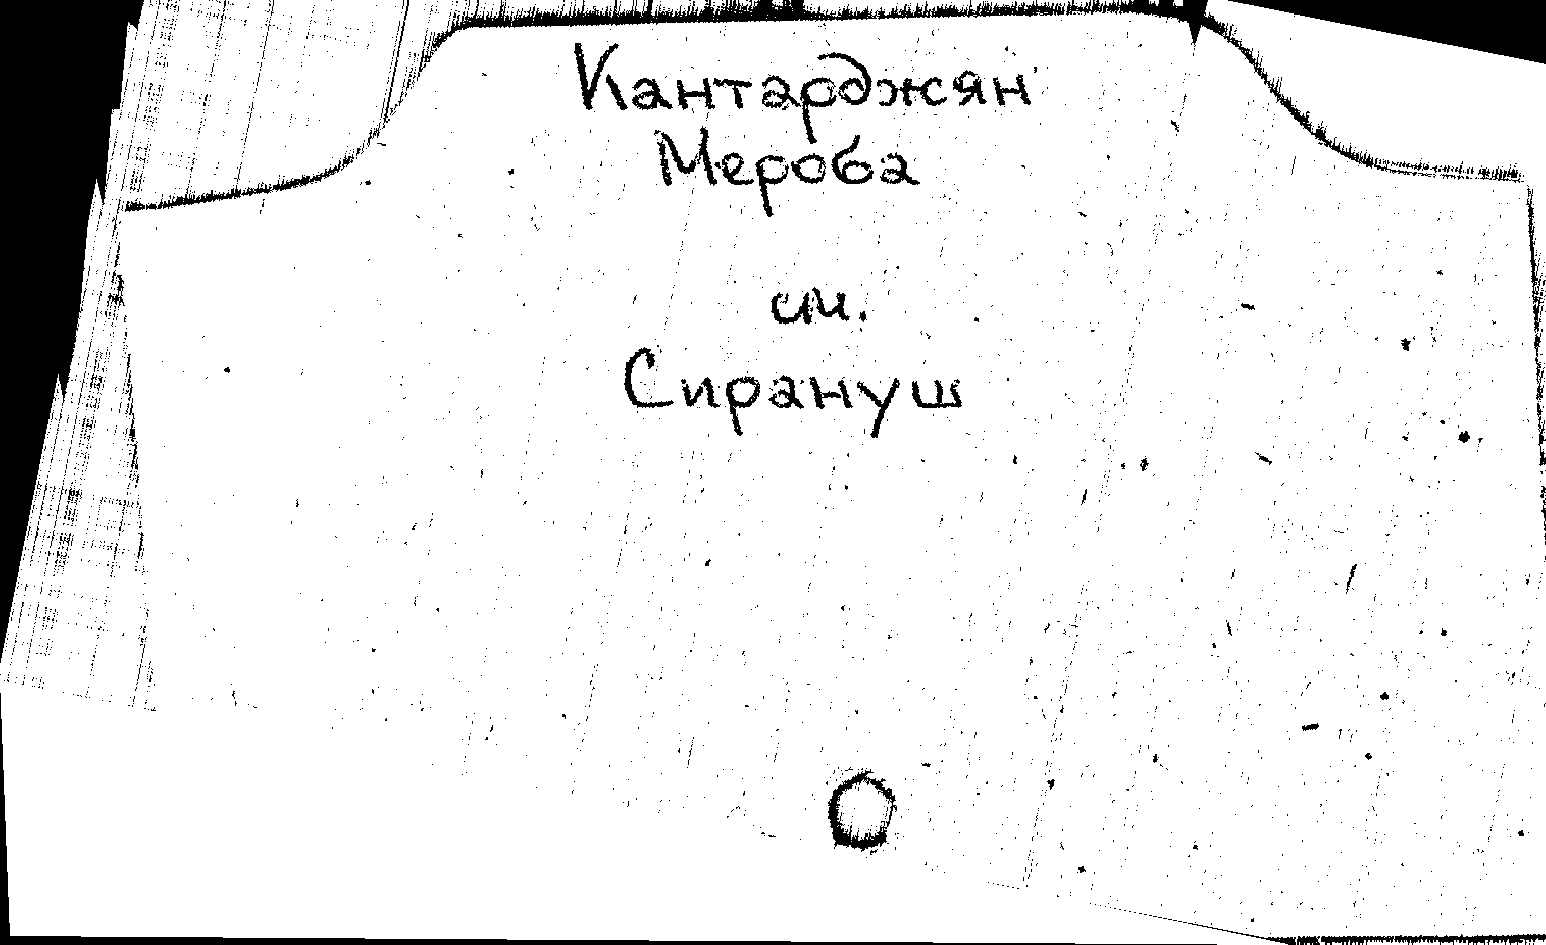 Кантарджян
Мероба
см.
Сирануш